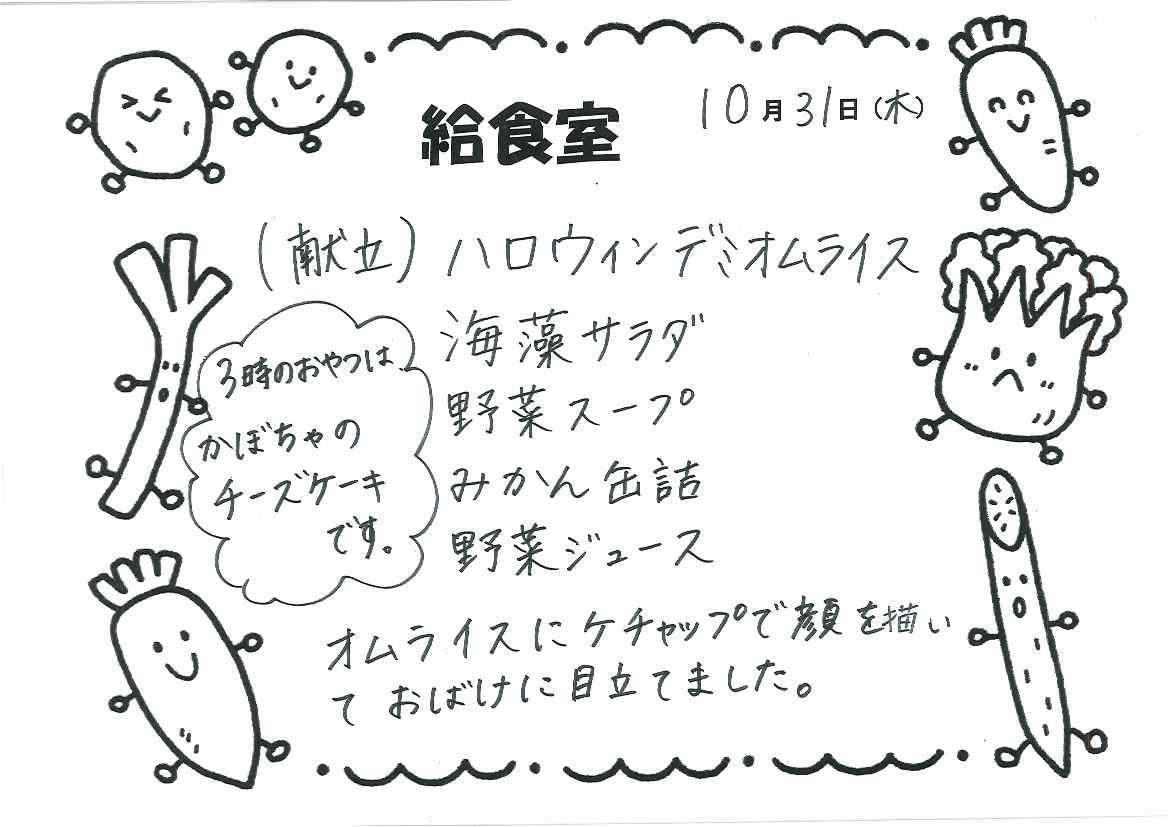 給食室
10月31日(木)
(献立) ハロウィンデミオムライス
海藻サラダ
野菜スープ
みかん缶詰
野菜ジュース
3時のおやつは
かぼちゃの
チーズケーキ
です。
オムライスにケチャップで顔を描い
て おばけに目立てました。